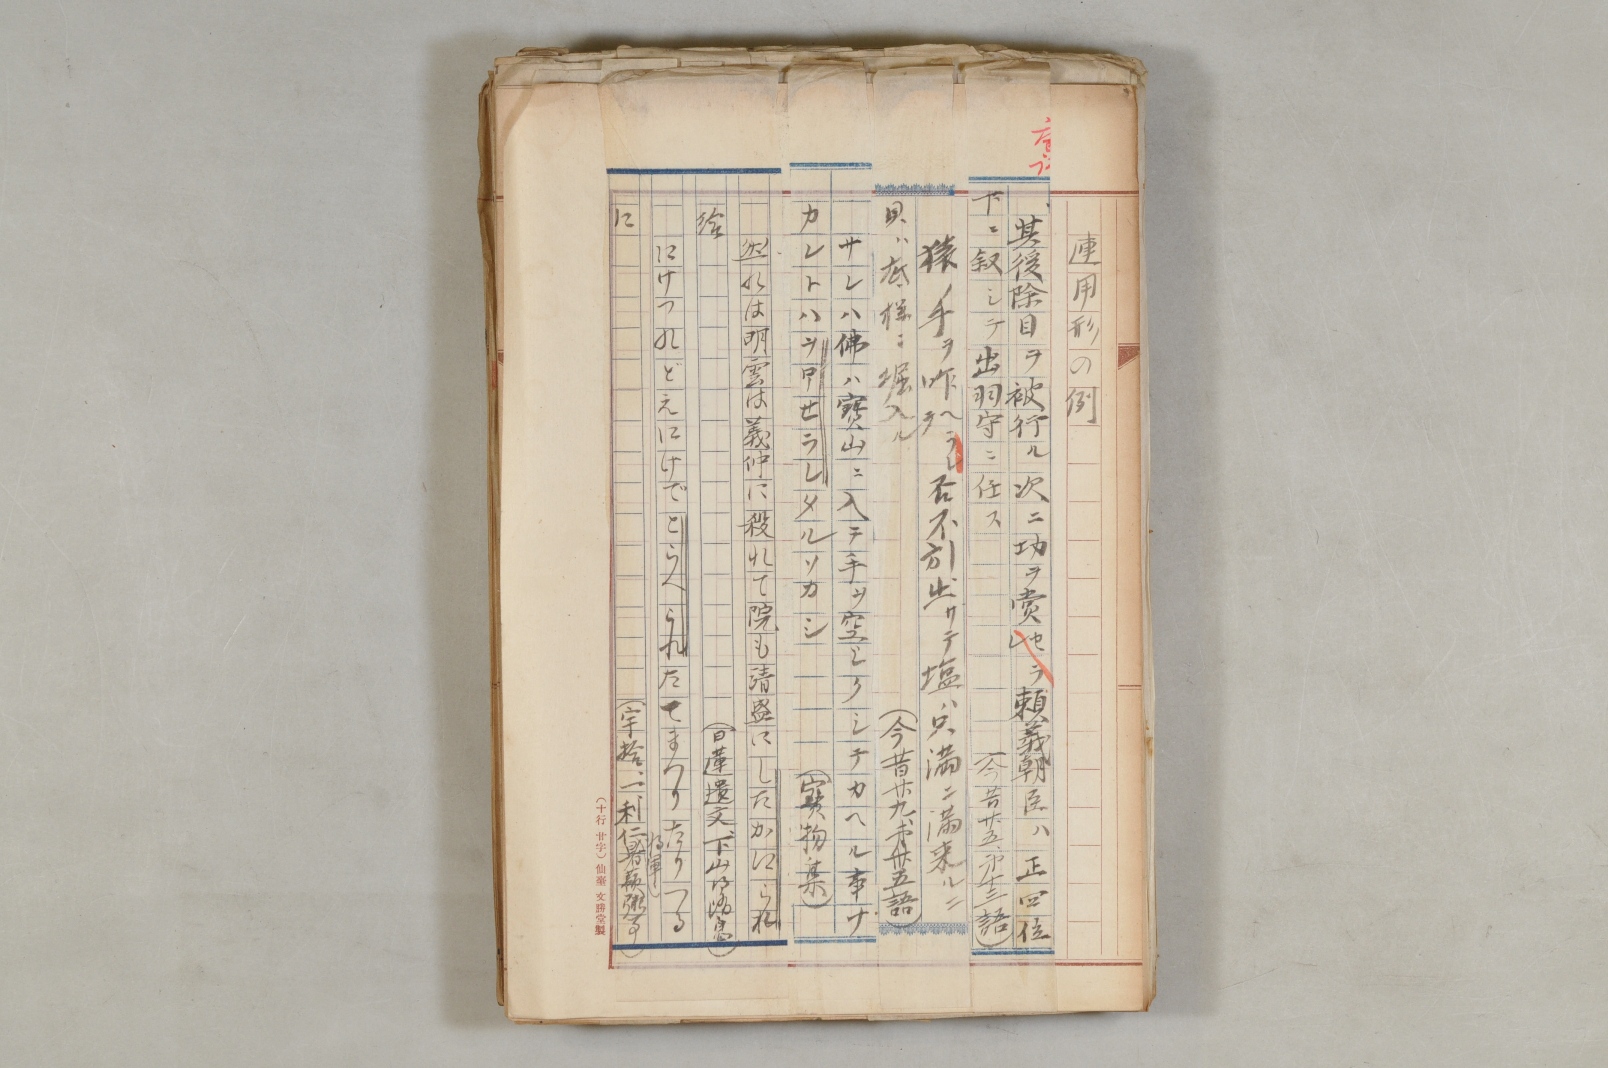 連用形の例
其後除目ヲ被行ル次ニ功ヲ賞セラレ頼義朝臣ハ正四位
下ニ叙シテ出羽守ニ任ス
(今昔廿五、第十三語)
猿ノ手ヲ咋ヘラレテ否不引出リテ塩ハ只満ニ満来ルニ
貝ハ底様ニ堀入ル
(今昔廿九、第卅五語)
サレハ佛ハ寶山ニ入テ手ヲ空シクシテカヘル事ナ
カレトハヲ甲せラレタルソカシ
(寶物集)
然れは明雲は義仲に殺れて院も清盛にしたかはられ
給
(日蓮遺文、下山御消息)
にけつれどえにけでとらへられたてまつりたりつる
に
(宇拾二、利仁署預粥事)
将軍
(十行廿字)仙臺 文勝堂製